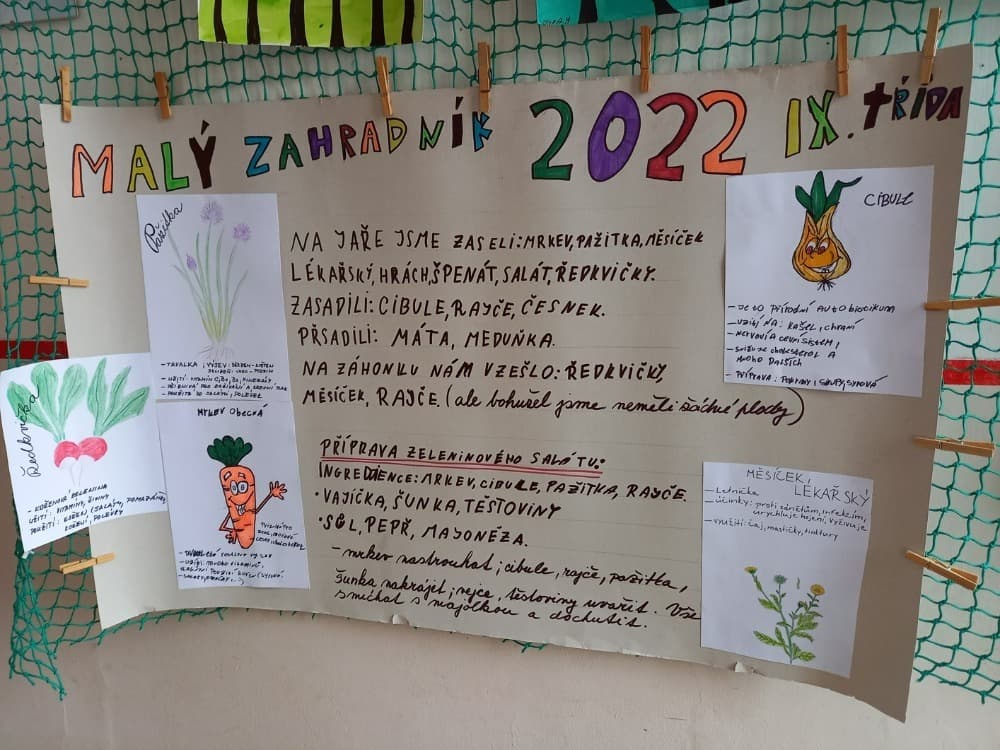 MALÝ ZAHRADNÍK 2022 IX. TŘÍDA
NA JAŘE JSME ZASELI: MRKEV, PAŽITKA, MĚSÍČEK
LÉKAŘSKÝ, HRÁCH, ŠPENÁT, SALÁT, ŘEDKVIČKY.
ZASADILI: CIBULE, RAJČE, ČESNEK.
PŘSADILI: MÁTA, MEDUŇKA.
NA ZÁHONKU NÁM VZEŠLO: ŘEDKVIČKY,
MĚSÍČEK, RAJČE. (ale bohušel jsme neměli žádné plody)
PŘÍPRAVA ZELENINOVÉHO SALÁTU:
INGREDIENCE: MRKEV, CIBULE, PAŽITKA, RAJČE.
• VAJÍČKA, ŠUNKA, TĚSTOVINY
• SŮL, PEPŘ, MAYONÉZA.
- mrkev nastrouhat; cibule, rajče, pažitka,
šunka nakrájet; vejce, těstoviny uvařit. Vše
smíchat s majolkou a dochutit.
Pažitka
Ředkvička
- KOŘENOVÁ ZELENINA
UŽITÍ: VITAMÍNY,
POUŽITÍ: KOŘEN, (SALÁTY, POMAZÁNKY
MRKEV OBECNÁ
CIBULE
- JE TO PŘÍRODNÍ AUTOBIOTIKUM
- UŽITÍ NA: KAŠEL, CHRANÍ
- NERVOVÍ A CEVNÍ SISTÉM,
SNIŽUJE CHOLESTEROL A
MNOHO DALŠÍCH
- PŘÍPRAVA: POKRMY, SIRUPY, SYROVÁ
MĚSÍČEK LÉKAŘSKÝ
- Letnička
- účinky: proti zánětům, infekcím,
urychluje hojení, vyživuje
- využití: čaj, mastičky, tinktury